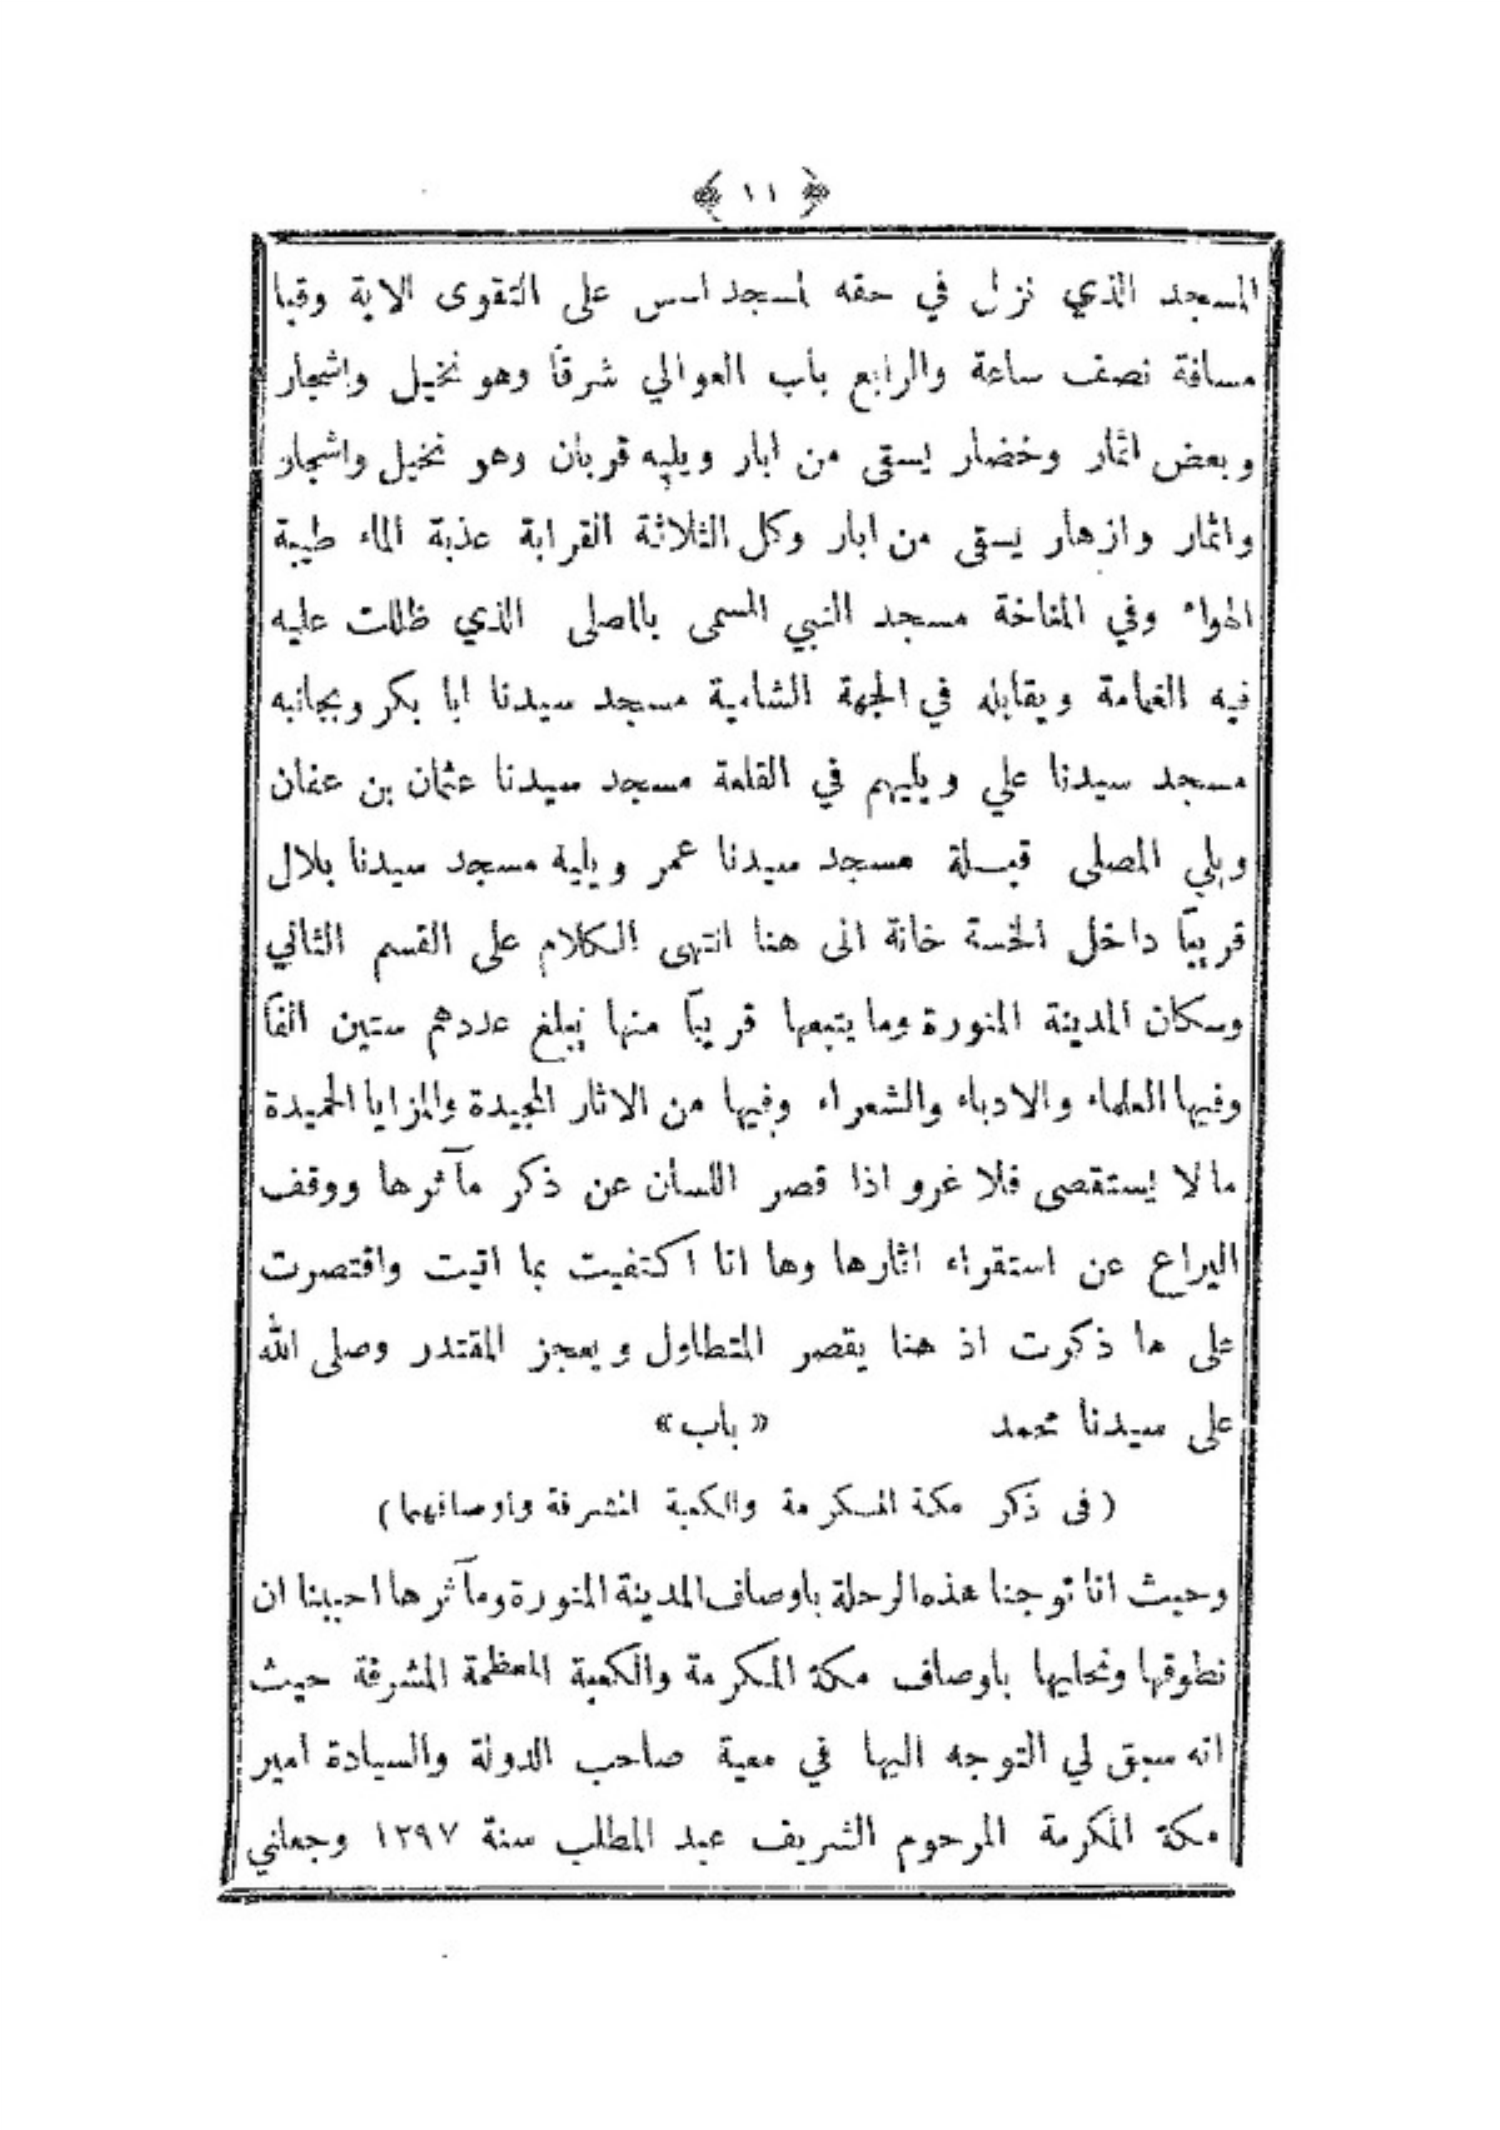 ﴿ ١١ ﴾
المسجد الذي نزل في حقه لمسجد اسس على التقوى الاية وقبا
مسافة نصف ساعة والرابع باب العوالي شرقاً وهو نخيل واشجار
وبعض اثمار وخضار يسقى من ابار ويليه قربان وهو نخيل واشجار
واثمار وازهار يسقى من ابار وكل الثلاثة القرابة عذبة الماء طيبة
الهواء وفي المناخة مسجد النبي المسمى بالمصلى الذي ظللت عليه
فيه الغمامة ويقابله في الجهة الشامية مسجد سيدنا ابا بكر وبجانبه
مسجد سيدنا علي ويليهم في القلعة مسجد سيدنا عثمان بن عفان
ويلي المصلى قبلة مسجد سيدنا عمر ويليه مسجد سيدنا بلال
قريباً داخل الخسة خانة الى هنا انتهى الكلام على القسم الثاني
وسكان المدينة المنورة وما يتبعها قريباً منها يبلغ عددهم ستين الفاً
وفيها العلماء والادباء والشعراء وفيها من الاثار المجيدة والمزايا الحميدة
ما لا يستقصى فلا غرو اذا قصر اللسان عن ذكر مآثرها ووقف
اليراع عن استقراء اثارها وها انا اكتفيت بما اتيت واقتصرت
على ما ذكرت اذ هنا يقصر المتطاول ويعجز المقتدر وصلى الله
على سيدنا محمد «باب»
(في ذكر مكة المكرمة والكعبة المشرفة واوصافهما)
وحيث انا توجنا هذه الرحلة باوصاف المدينة المنورة ومآثرها احببنا ان
نطوقها ونحليها باوصاف مكة المكرمة والكعبة المعظمة المشرفة حيث
انه سبق لي التوجه اليها في معية صاحب الدولة والسيادة امير
مكة المكرمة المرحوم الشريف عبد المطلب سنة ١٢٩٧ وجعلني